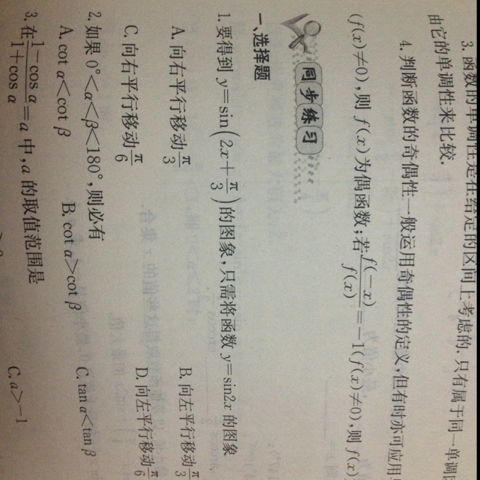 3. 函数的单调性是在给定的区间上考虑的.只有属于同一单调
由它的单调性来比较.
4. 判断函数的奇偶性一般运用奇偶性的定义,但有时亦可应用
(f(x)≠0),则 f(x)为偶函数;若f(-x)/f(x)=-1(f(x)≠0),则 f(x)
同步练习
一、选择题
1. 要得到 y=sin(2x+π/3)的图象,只需将函数 y=sin2x 的图象
A. 向右平行移动π/3 B. 向左平行移动π/3
C. 向右平行移动π/6 D. 向左平行移动π/6
2. 如果 0°<α<β<180°,则必有
A. cot α<cot β B. cot α>cot β C. tan α<tan β
3. 在1-cos α/1+cos α=a 中,a 的取值范围是
C. a>-1